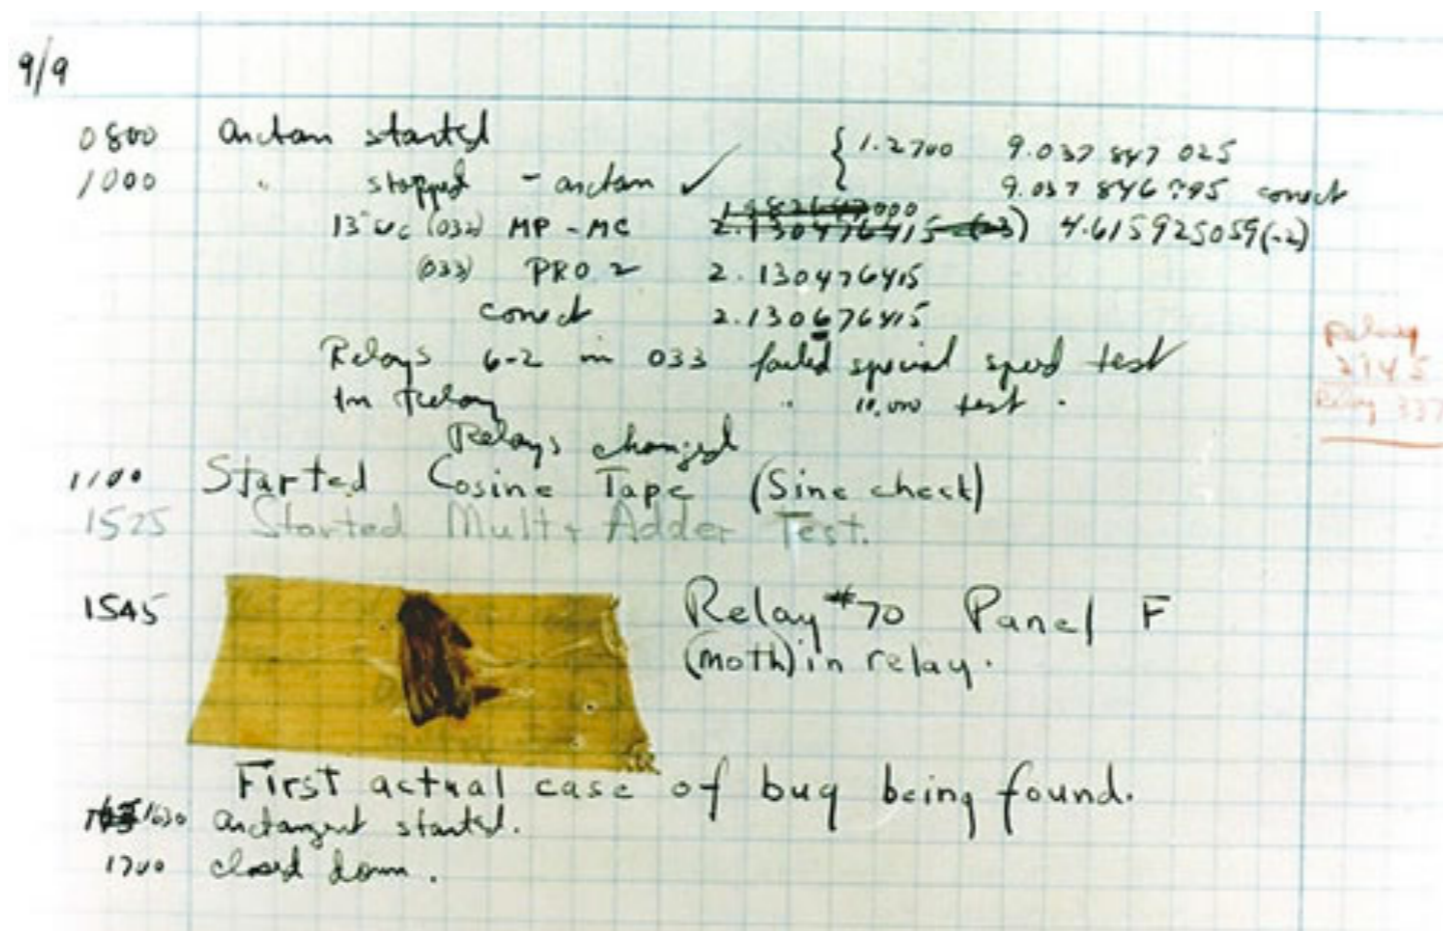 9/9
0800 Antan started
1000 " stopped - antan ✓ { 1.2700 9.037 847 025
9.037 846 795 conect
13"uc (032) MP - MC 2.130476415 (-3) 4.615925059(-2)
(033) PRO 2 2.130476415
conect 2.130676415
Relays 6-2 in 033 failed special speed test
In Relay " 10,000 test .
Relays changed
1100 Started Cosine Tape (Sine check)
1525 Started Mult + Adder Test.
1545 Relay #70 Panel F
(moth) in relay.
First actual case of bug being found.
1630 antangent started.
1700 closed down .
Relay
2145
Relay 337